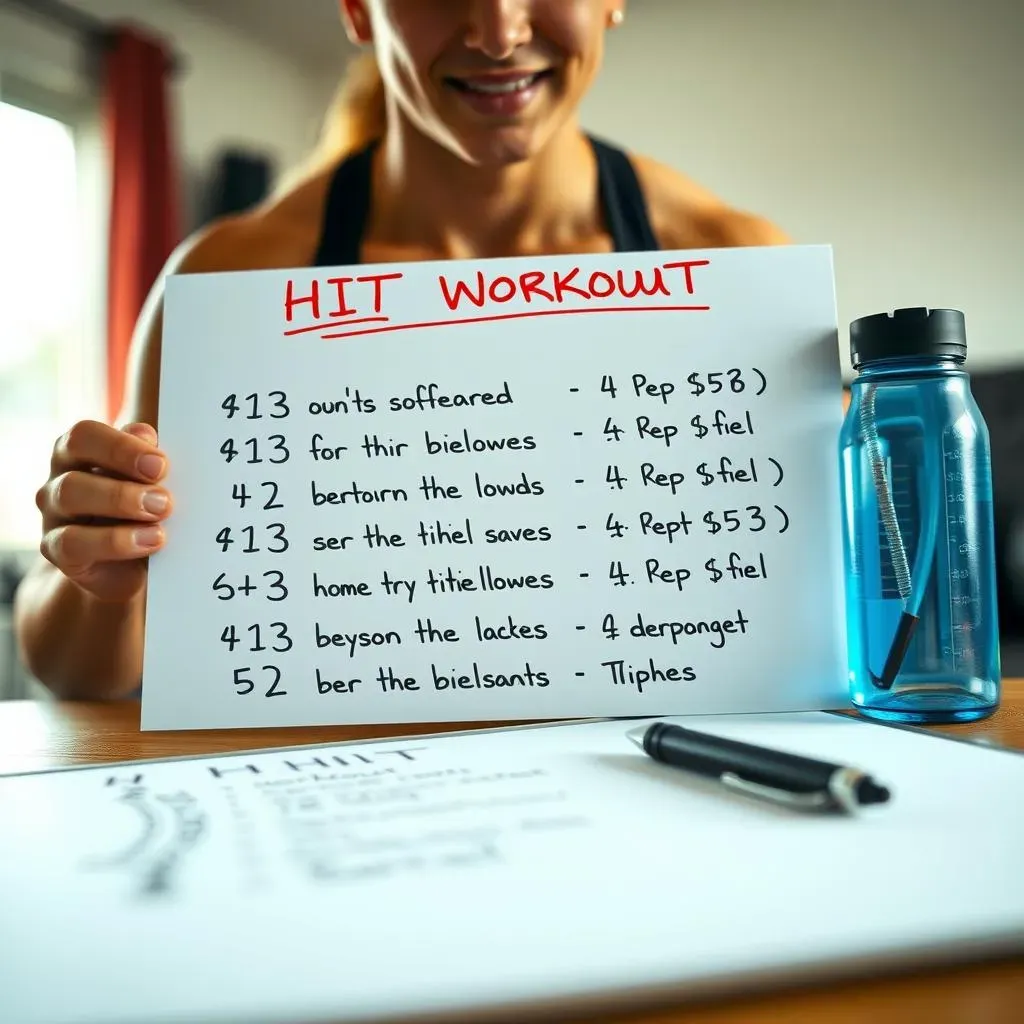 HIT WORKOUT
413 oun'ts soffeared - 4 Pep $538)
413 for thir bielowes - 4 Rep $fiel
42 bertorn the lowds - 4 Rep $fiel)
413 ser the tihel saves - 4. Rept $53)
5+3 home try titiellowes - 4. Rep $fiel
413 beyson the lackes - 4 derponget
52 ber the bielsants - Tliphes
H H HIIT